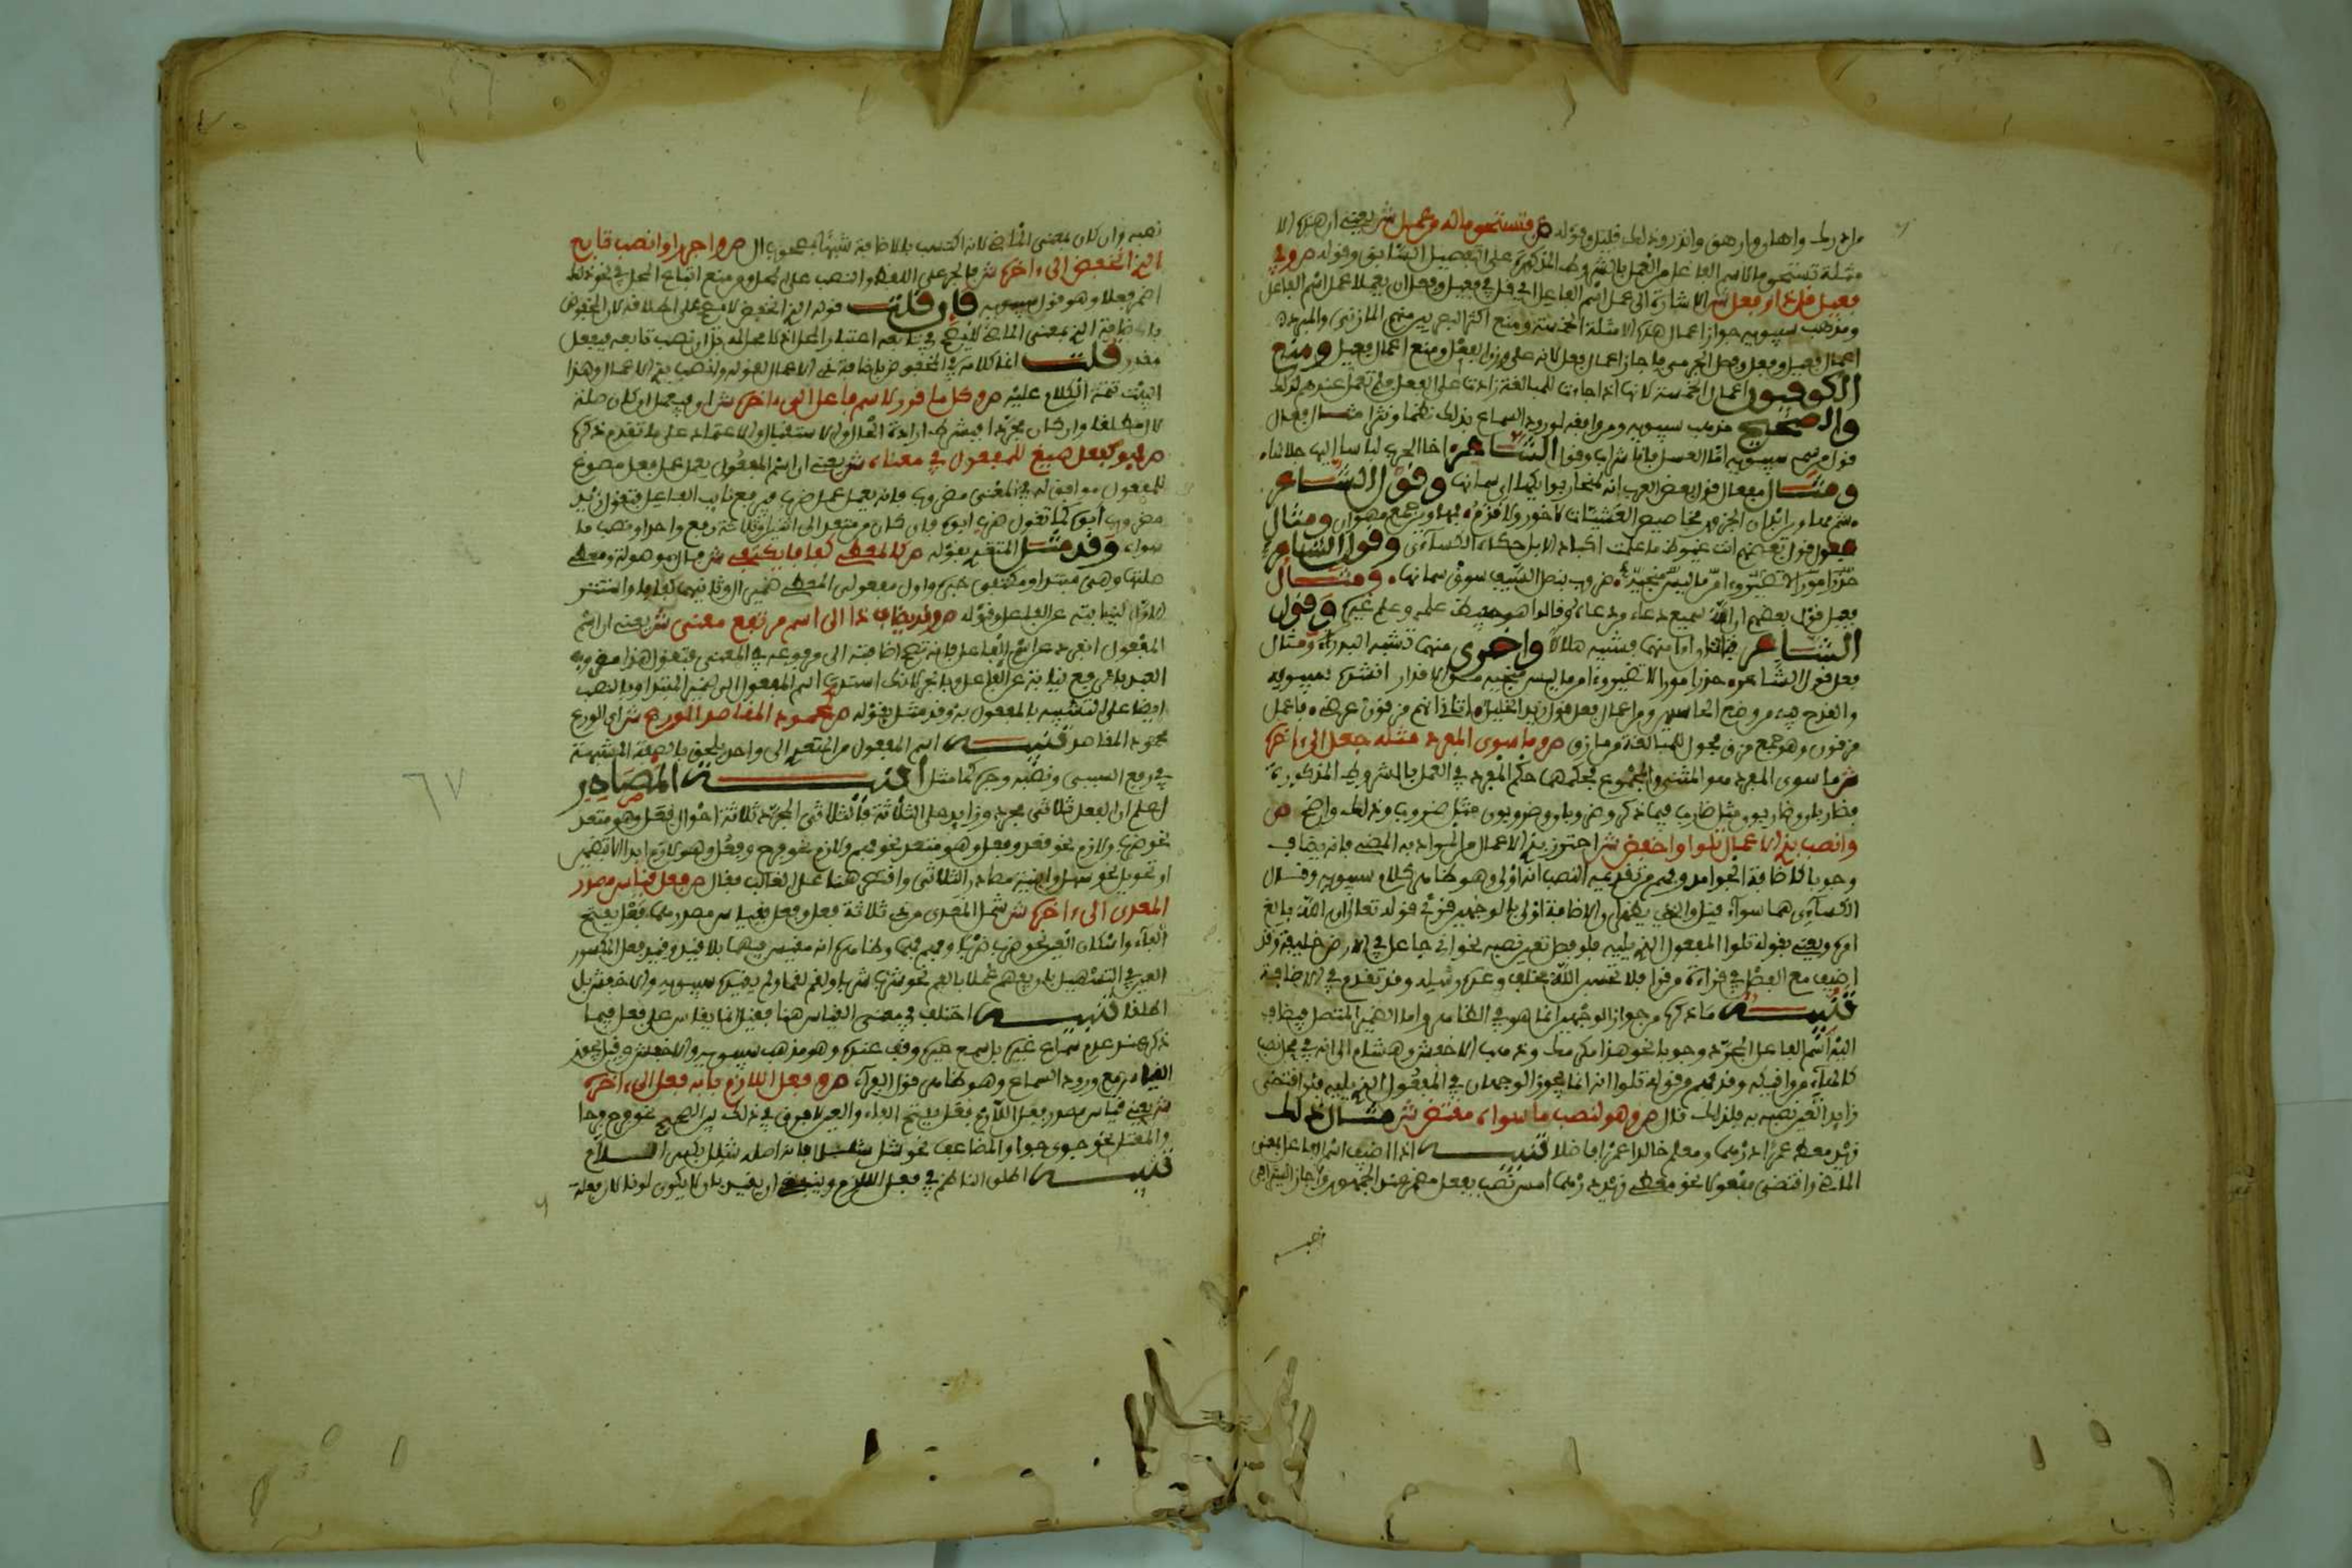 من ادرك واهان وارهق وانذر وذلك قليل وقوله ص فتستحق ماله من عمل ش يعني ان هذه الا
مثلة تستحق ما لاسم الفاعل من العمل بالشروط المذكورة على التفصيل السابق وقوله ص وفي
فعيل قل ذا وفعل ش الاشارة الى عمل اسم الفاعل اي قل في فعيل وفعل ان يعملا عمل اسم الفاعل
ومذهب سيبويه جواز اعمال هذه الامثلة الخمسة ومنع اكثر البصريين منهم المازني والمبرد
اعمال فعيل وفعل وفصل الجرمي فاجاز اعمال فعل لانه على وزن الفعل ومنع اعمال فعيل ومنع
الكوفيون اعمال الخمسة لانها اذا جاءت للمبالغة زادت على الفعل فلم تعمل عندهم لذلك
والصحيح مذهب سيبويه ومن وافقه لورود السماع بذلك نظما ونثرا مثال فعال
قول من سمعه سيبويه اما العسل فانا شراب وقول الشاعر اخا الحرب لباسا اليها جلالها
ومثال مفعال قول بعض العرب انه لمنحار بوائكها اي سمانها وقول الشاعر
شم مهاوين ابدان الجزور مخاميص العشيات لا خور ولا قزم جمع مهوان ومثال
فعول قول بعضهم انت غيوظ ما علمت اكباد الابل حكاه الكسائي وقول الشاعر
ضروب بنصل السيف سوق سمانها ومثال
فعيل قول بعضهم ان الله سميع دعاء من دعاه وقالوا هو حفيظ علمه وعلم غيره وقول
الشاعر فتاتان اما منهما فشبيه هلالا واخرى منهما تشبه البدرا ومثال
فعل قول الشاعر حذر امورا لا تضير وامن ما ليس منجيه من الاقدار انشده سيبويه
والقدح فيه من وضع الحاسدين ومن اعمال فعل قول زيد الخيل اتاني انهم مزقون عرضي فاعمل
مزقون وهو جمع مزق محول للمبالغة من مازق ص وما سوى المفرد مثله جعل الى اخره
ش ما سوى المفرد هو المثنى والمجموع فحكمهما حكم المفرد في العمل بالشروط المذكورة
فضاربان وضاربون مثل ضارب فيما ذكر وضروبان وضروبون مثل ضروب وذلك واضح ص
وانصب بذي الاعمال تلوا واخفض ش احترز بذي الاعمال من المراد به المضي فانه يضاف
وجوبا كاضافة الجوامد وفهم من تقديمه النصب انه اولى وهو ظاهر كلام سيبويه وقال
الكسائي هما سواء قيل والذي يظهر ان الاضافة اولى بالوجهين قرئ قوله تعالى ان الله بالغ
امره ويعني بقوله تلوا المفعول الذي يليه فلو فصل تعين نصبه نحو اني جاعل في الارض خليفة وقد
اضيف مع الفصل في قراءة من قرا فلا تحسبن الله مخلف وعده رسله وقد تقدم في الاضافة
تنبيه ما ذكره من جواز الوجهين انما هو في الظاهر واما الضمير المتصل فيضاف
اليه اسم الفاعل المجرد وجوبا نحو هذا مكرمك وذهب الاخفش وهشام الى انه في محل نصب
كالهاء من وافيكه وقد فهم من قوله تلوا انه انما يجوز الوجهان في المفعول الذي يليه فلو اقتضى
زايدا تعين نصبه فلذلك قال ص وهو لنصب ما سواه مقتض ش مثال ذلك
زيد معطي عمرو درهما ومعلم خالد عمرا فاضلا تنبيه اذا اضيف اسم الفاعل بمعنى
الماضي واقتضى مفعولا نحو معطي زيد درهما امس نصب بفعل مضمر عند الجمهور واجاز السيرافي
نصبه
نصبه وان كان بمعنى الماضي لانه اكتسب بالاضافة شبها بمصحوب ال ص واجرر او انصب تابع
الذي انخفض الى اخره ش فالجر على اللفظ والنصب على المحل ومن منع اتباع المحل في نحو ذلك
اضمر فعلا وهو قول سيبويه فان قلت قوله الذي انخفض لا يصح على اطلاقه لان المخفوض
باضافة الذي بمعنى الماضي لا يصح في تابعه اعتبار المحل اذ لا محل له فان نصب تابعه فبفعل
مقدر قلت انما كلامه في المخفوض باضافة ذي الاعمال لقوله وانصب بذي الاعمال وهذا
البيت تتمة الكلام عليه ص وكل ما قرر لاسم فاعل الى اخره ش اي فيعمل ان كان صلة
لال مطلقا وان كان مجردا فبشرط ارادة الحال او الاستقبال والاعتماد على ما تقدم ذكره
ص فهو كفعل صيغ للمفعول في معناه ش يعني ان اسم المفعول يعمل عمل فعل مصوغ
للمفعول موافق له في المعنى مضروب فانه يعمل عمل ضرب فيرفع نايب الفاعل فتقول زيد
مضروب ابوه كما تقول ضرب ابوه فان كان من متعد الى اثنين او ثلاثة رفع واحدا ونصب ما
سواه وقد مثل المتعدي بقوله ص كالمعطى كفافا يكتفي ش فال موصولة ومعطى
صلتها وهي مبتدا ويكتفي خبره واول مفعولي المعطى ضمير ال وثانيهما كفافا واستتر
الاول لنيابته عن الفاعل وقوله ص وقد يضاف ذا الى اسم مرتفع معنى ش يعني ان اسم
المفعول انفرد عن اسم الفاعل فانه تصح اضافته الى مرفوعه في المعنى فتقول هذا مضروب
العبد بالرفع نيابة عن الفاعل وبالجر لانك اسندت اسم المفعول الى ضمير المبتدا وبالنصب
ايضا على التشبيه بالمفعول به وقد مثل بقوله ص محمود المقاصد الورع ش اي الورع
محمود المقاصد تنبيه اسم المفعول من المتعدي الى واحد يلحق بالصفة المشبهة
في رفع السببي ونصبه وجره كما مثل ابنية المصادر
اعلم ان الفعل ثلاثي مجرد وزايد على الثلاثة فالثلاثي المجرد ثلاثة احوال فعل وهو متعد
نحو ضرب ولازم نحو قعد وفعل وهو متعد نحو فهم ولازم نحو فرح وفعل وهو لازم ابدا الا بتضمين
او تحويل نحو سهل وابنية مصادر الثلاثي واقتصر هنا على الغالب فقال ص فعل قياس مصدر
المعدى الى اخره ش شمل المعدى من ذي ثلاثة فعل وفعل فقياس مصدرهما فعل بفتح
الفاء واسكان العين نحو ضرب ضربا وفهم فهما وظاهره انه مقيس فيهما بلا قيد وقيد فعل المكسور
العين في التسهيل بان يفهم عملا بالفم نحو شرب شربا ولقم لقما ولم يقيده سيبويه والاخفش بل
اطلقا تنبيه اختلف في معنى القياس هنا فقيل انما يقاس على فعل فيما
ذكر عند عدم سماع غيره فان سمع غيره وقف عنده وهو مذهب سيبويه والاخفش وقيل يجوز
القياس مع ورود السماع وهو ظاهر قول الفراء ص وفعل اللازم بابه فعل الى اخره
ش يعني قياس مصدر فعل اللازم فعل بفتح الفاء والعين لا فرق في ذلك بين الصحيح نحو فرح فرحا
والمعتل نحو جوي جوى والمضاعف نحو شل شللا فانه اصله شلل بكسر اللام
تنبيه اطلق الناظم في فعل اللازم وينبغي ان يقيد بان لا يكون لونا لان فعلة
٦٧